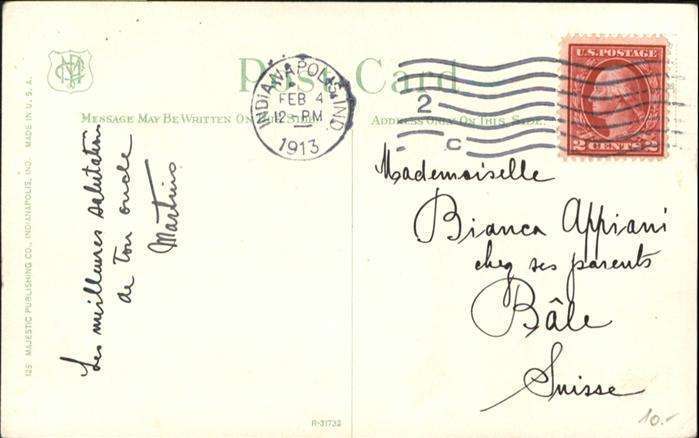 Post Card
MESSAGE MAY BE WRITTEN ON THIS SIDE.
ADDRESS ONLY ON THIS SIDE.
INDIANAPOLIS, IND.
FEB 4
12 - PM
1913
2
C
U.S. POSTAGE
2 CENTS 2
Les meilleures salutations
de ton oncle
Martino
Mademoiselle
Bianca Appiani
chez ses parents
Bâle
Suisse
125 MAJESTIC PUBLISHING CO., INDIANAPOLIS, IND. MADE IN U.S.A.
R-31732
10.-